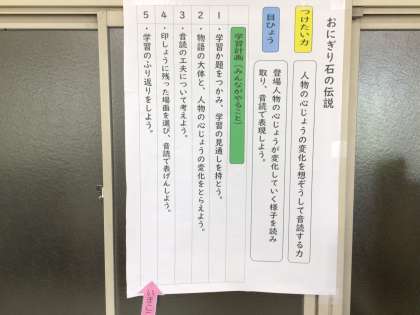 おにぎり石の伝説
つけたい力
人物の心じょうの変化を想ぞうして音読する力
目ひょう
登場人物の心じょうが変化していく様子を読み
取り、音読で表現しよう。
学習計画(みんながやること)
1・学習か題をつかみ、学習の見通しを持とう。
2・物語の大体と、人物の心じょうの変化をとらえよう。
3・音読の工夫について考えよう。
4・印しょうに残った場面を選び、音読で表げんしよう。
5・学習のふり返りをしよう。
いまここ